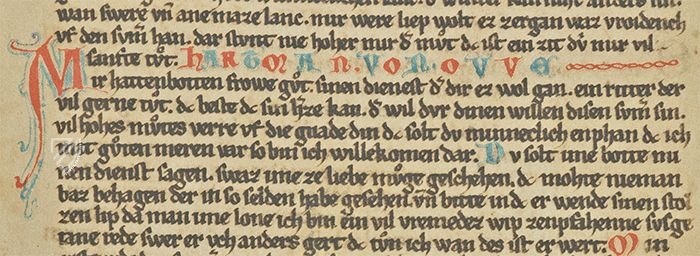 wan swere vñ ane maze lanc. mir were liep wolt ez zergan waz vroidench
vf den svm̄ han. dar stvnt nie hoher mir d̄ mv̊t dc ist ein zit dv̓ mir vil
sanfte tv̊t. HARTMAN. VON OVVE
Mir hat enbotten frowe gv̊t. sinen dienest d̄ dir ez wol gan. ein ritter der
vil gerne tv̊t. dc beste dc sin h̓ze kan. d̄ wil dvr dinen willen disen svm̓ sin.
vil hohes mv̊tes verre vf die gnade din dc solt dv minneclich enphan dc ich
mit gv̊ten meren var so bin ich willekomen dar. Dv solt ime botte mi
nen dienst sagen. swaz ime ze liebe mv̊ge geschehen. dc mohte nieman
baz behagen der in so selden habe gesehen. vn̄ bitte in dc er wende sinen stol
zen lip da man ime lone ich bin ein vil vremedez wip zenpfahenne svsge
tane rede swer er ỽch anders gert dc tv̊n ich wan des ist er wert: Min